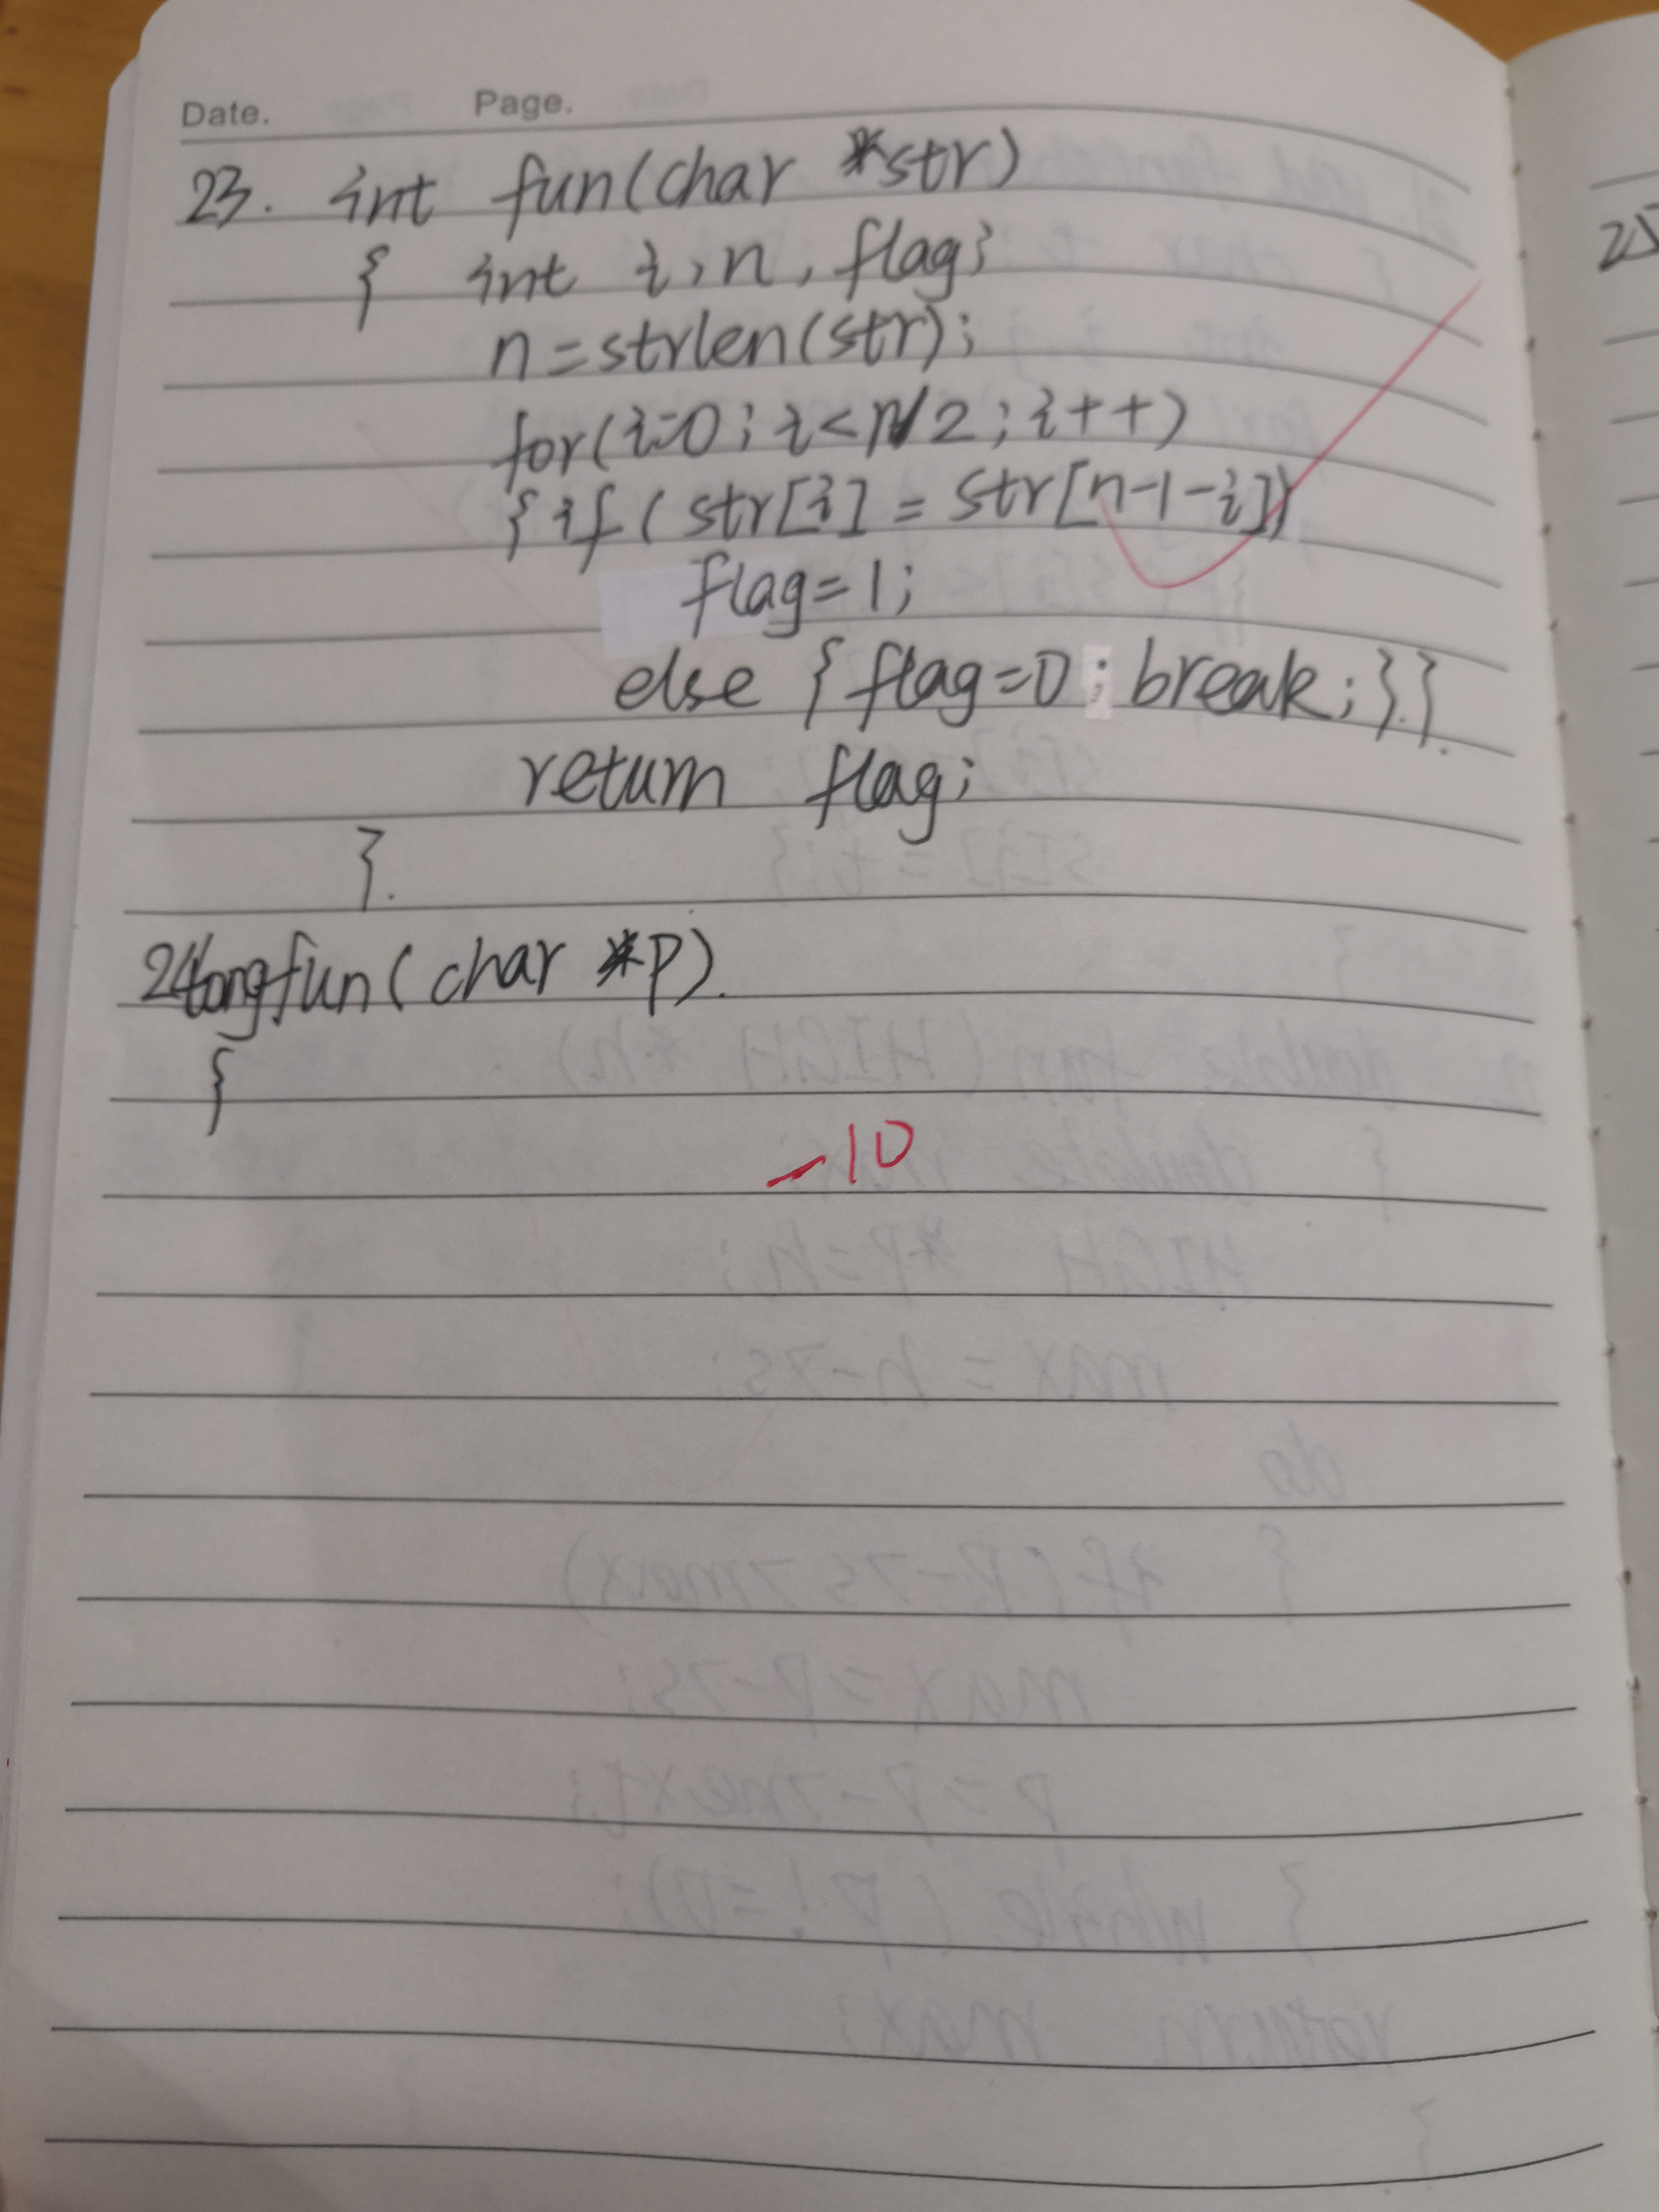 Date. Page.
23. int fun(char *str)
{ int i,n,flag;
n=strlen(str);
for(i=0;i<n/2;i++)
{if(str[i]=str[n-1-i])
flag=1;
else {flag=0;break;}}.
return flag;
}.
24long fun(char *p).
{
-10
25